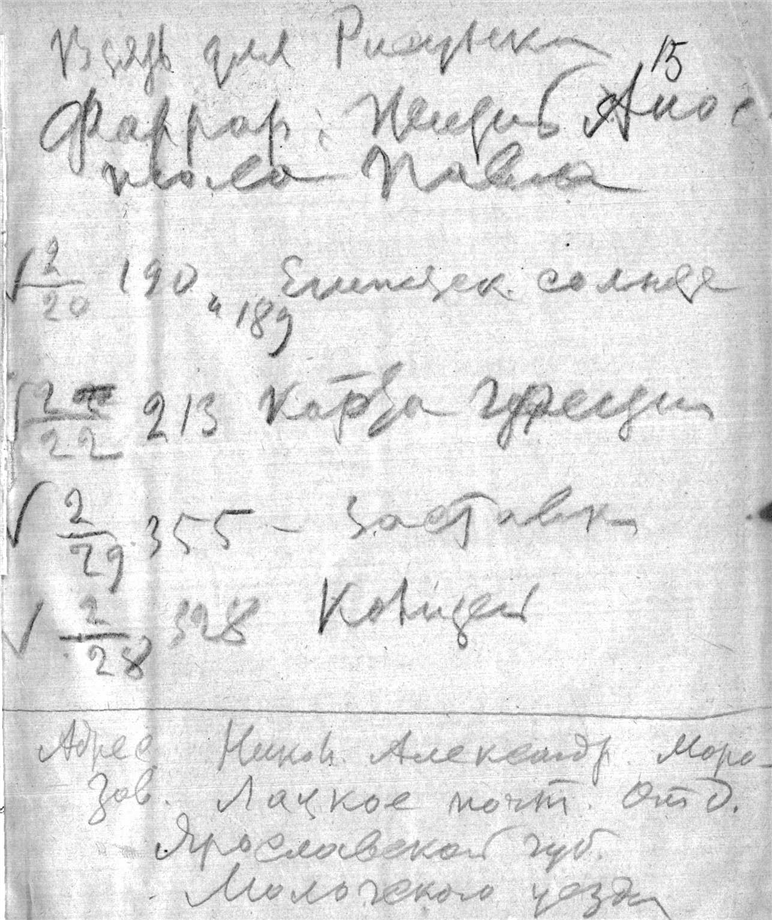 Взять для Рисунка
15
Фаррар: Жизнь Апос
тола Павла
√ 2/20 190 и 189 Египетск. солнце
√ 2/22 213 Карта Греции
√ 2/29 355 – Заставк
√ 2/28 328 Ковчег
Адрес Никол. Александр. Моро-
зов. Лацкое почт. Отд.
Ярославской губ.
Мологского уезда